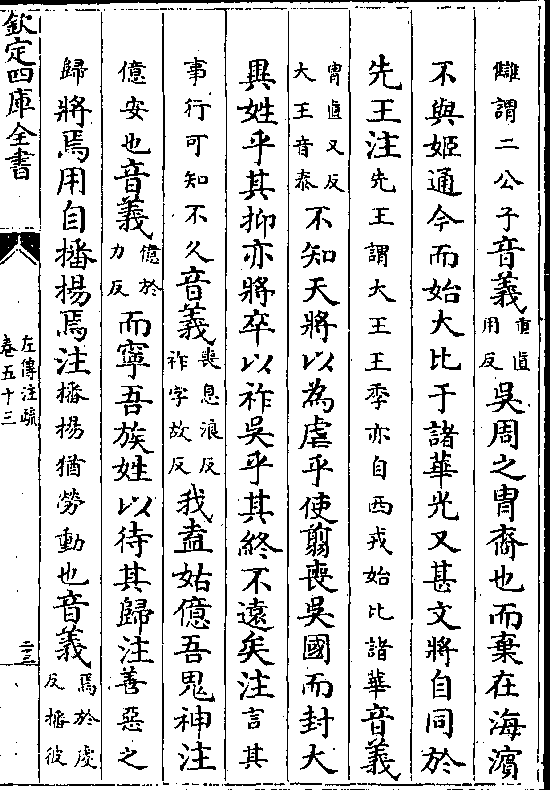 讎謂二公子音義重直用反吳周之胄裔也而棄在海濱
不與姬通今而始大比于諸華光又甚文將自同於
先王注先王謂大王王季亦自西戎始比諸華音義
胄直又反大王音泰不知天將以為虐乎使翦喪吳國而封大
異姓乎其抑亦將卒以祚吳乎其終不遠矣注言其
事行可知不久音義喪息浪反祚字故反我盍姑億吾鬼神注
億安也音義億於力反而寧吾族姓以待其歸注善惡之
歸將焉用自播揚焉注播揚猶勞動也音義焉於虔反播彼
欽定四庫全書
左傳注疏
卷五十三
二十三